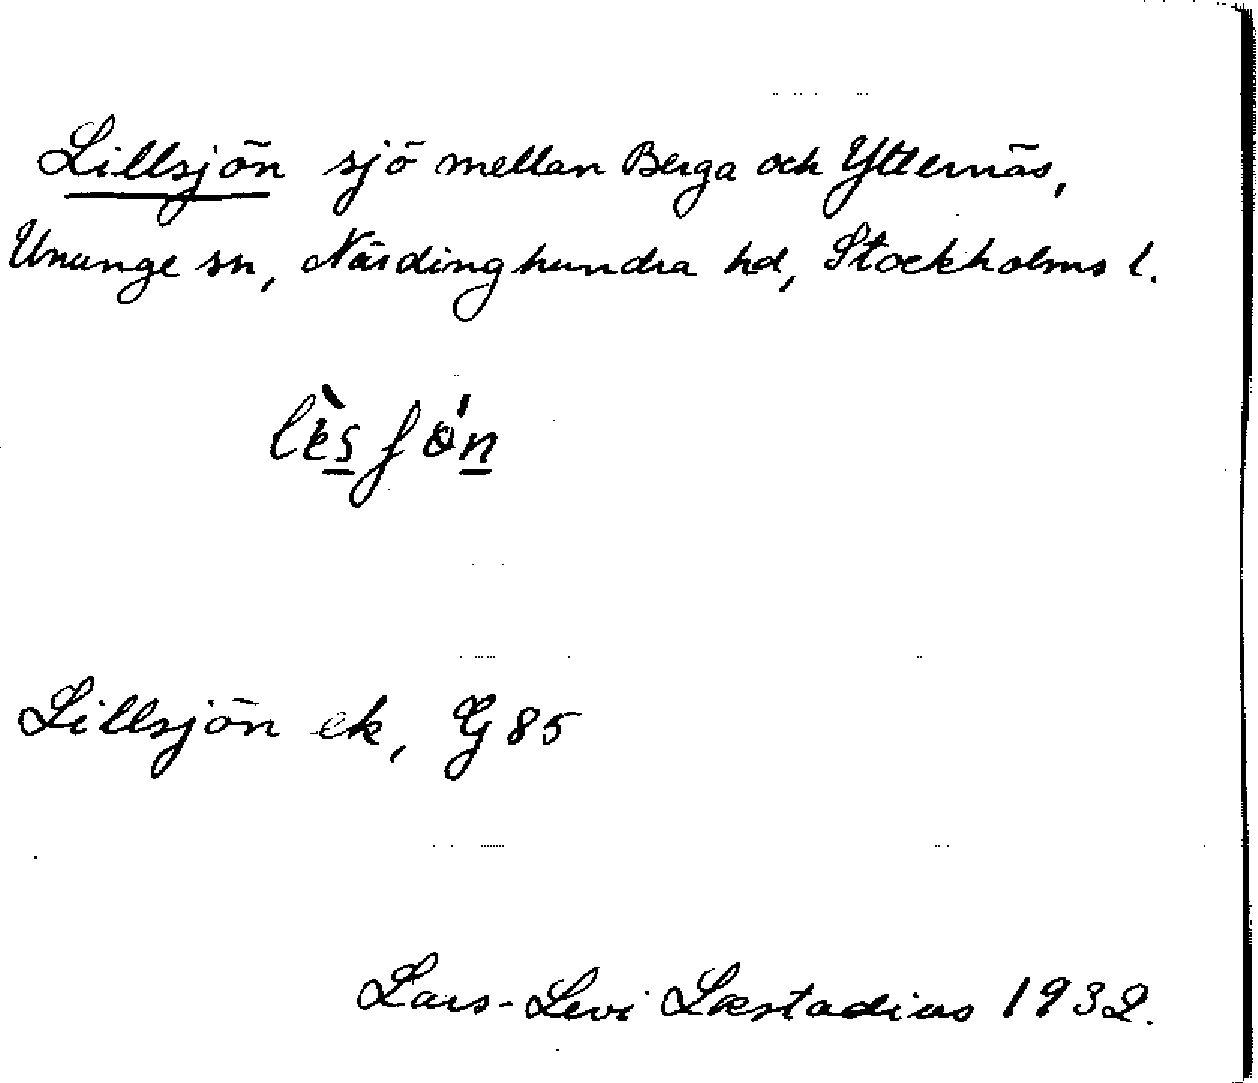 Lillsjön sjö mellan Berga och Ytternäs,
Ununge sn, Närdinghundra hd, Stockholms l.
Lillsjön ek, G 85
Lars-Levi Læstadius 1932.